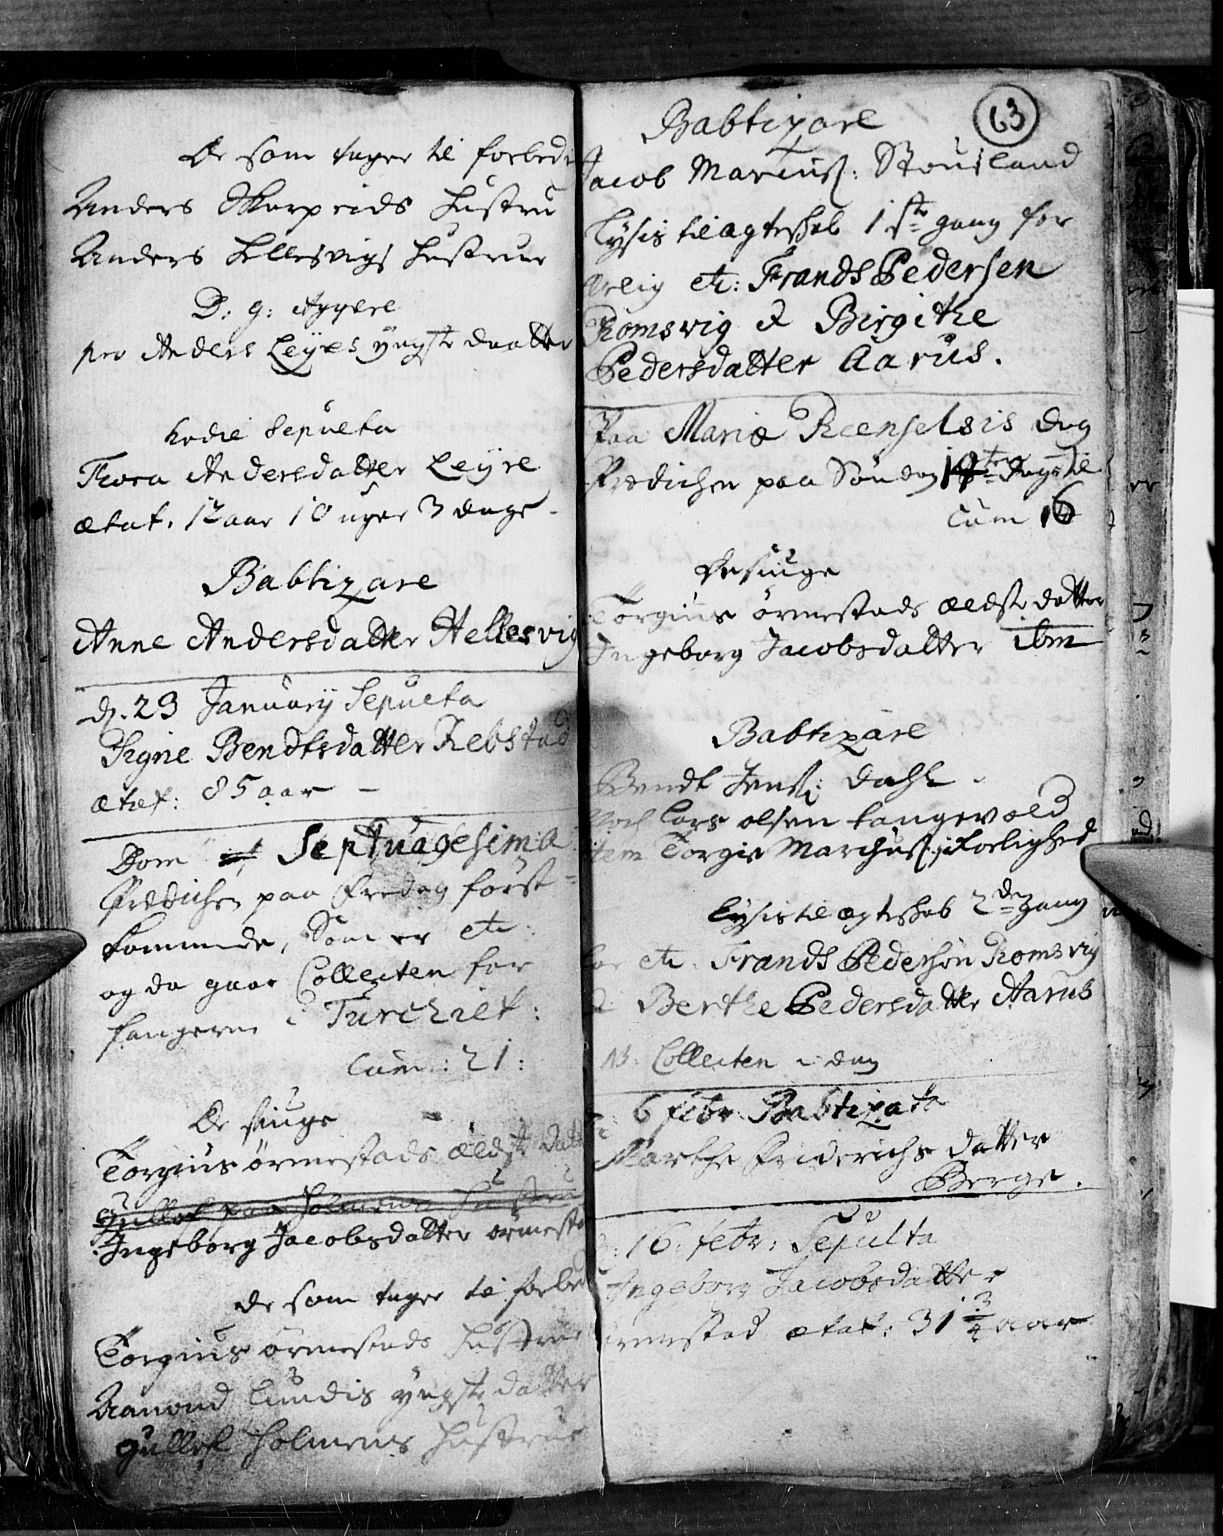 De som tager til forbed
Anders Skarpeids Hustru
Anders Hellesvigs Hustrue
D: g: Aggere
pro Anders Leyres yngste daatter
hodie Sepulta
Thora Andersdatter Leyre
ætat. 12 aar 10 uger 3 dage.
Babtizare
Anne Andersdatter Hellesvig
d. 23 Januarij Sepulta
Signe Bendtsdatter Rebstad
ætat: 85 aar
Dom Septuagesima
Prædichen paa Fredag først-
kommende, Som er etc:
og da gaar Collecten for
fangerne i Turchiet:
Cum: 21:
De siuge
Torgius ørmestads ældste datt
Gullof paa Holmens Hustru
Ingeborg Jacobsdatter ørmesta
de som tager til forbed
Torgius ørmestads Hustrue
Aanond Lundis yngste datter
Gullof Holmens Hustrue
63
Babtizare
Jacob Mariuss: Stousland
Lysis til ægteskab 1ste gang for
ærlig etc: Frands Pedersen
Romsvig & Birgithe
Pedersdatter Aarus.
Paa Mariæ Renselsis dag
Prædichen paa Søndag dags til
Cum 16
De siuge
Torgius ørmestads ældste datter
Ingeborg Jacobsdatter ibm
Babtizare
Bendt Jenss: Dahl
Lars olsen Langevold
item Torgie Marchuss:
Lysis til ægteskab 2den gang
for etc. Frands Pedersøn Romsvig
& Berthe Pedersdatter Aarus
NB. Collecten i dag
6 febr: Babtizata
Marthe Friderichs datter
Berge.
d: 16. febr: Sepulta
Ingeborg Jacobsdatter
ørmestad ætat: 31 3/4 aar